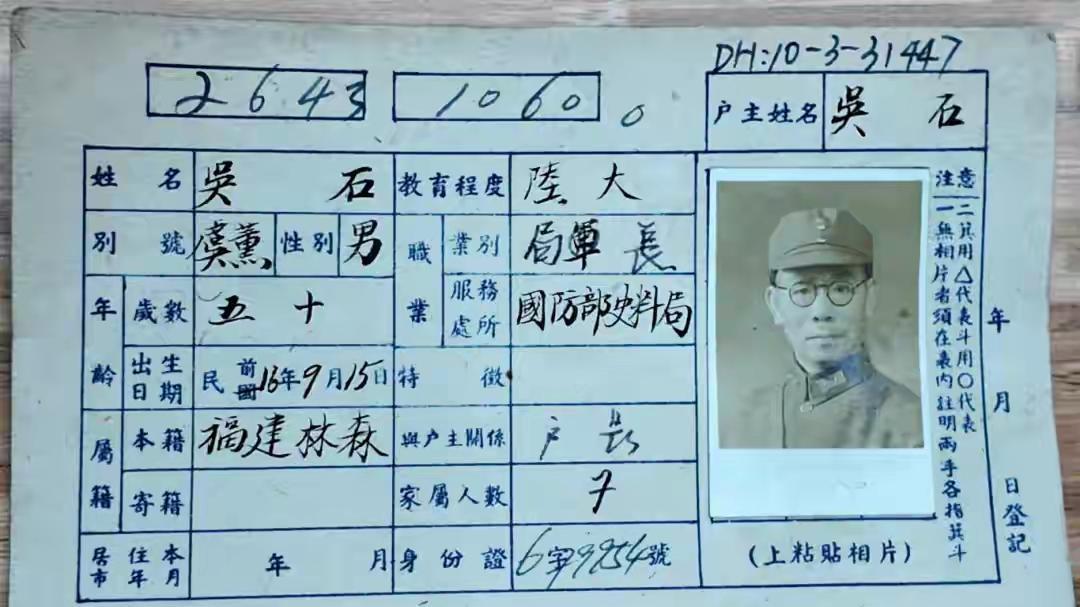 DH:10-3-31447
2643 1060 0
戶主姓名 吳石
姓名 吳石 教育程度 陸大
別號 虞薰 性別 男 職業 業別 局長
年齡 歲數 五十 服務處所 國防部史料局
出生日期 民前16年9月15日 特徵
屬籍 本籍 福建林森 與戶主關係 戶長
寄籍 家屬人數 7
居住本市年月 年 月 身份證 號
注意
一無相片者須在表內註明兩手各指箕斗
二箕用△代表斗用○代表
(上粘貼相片)
年 月 日登記